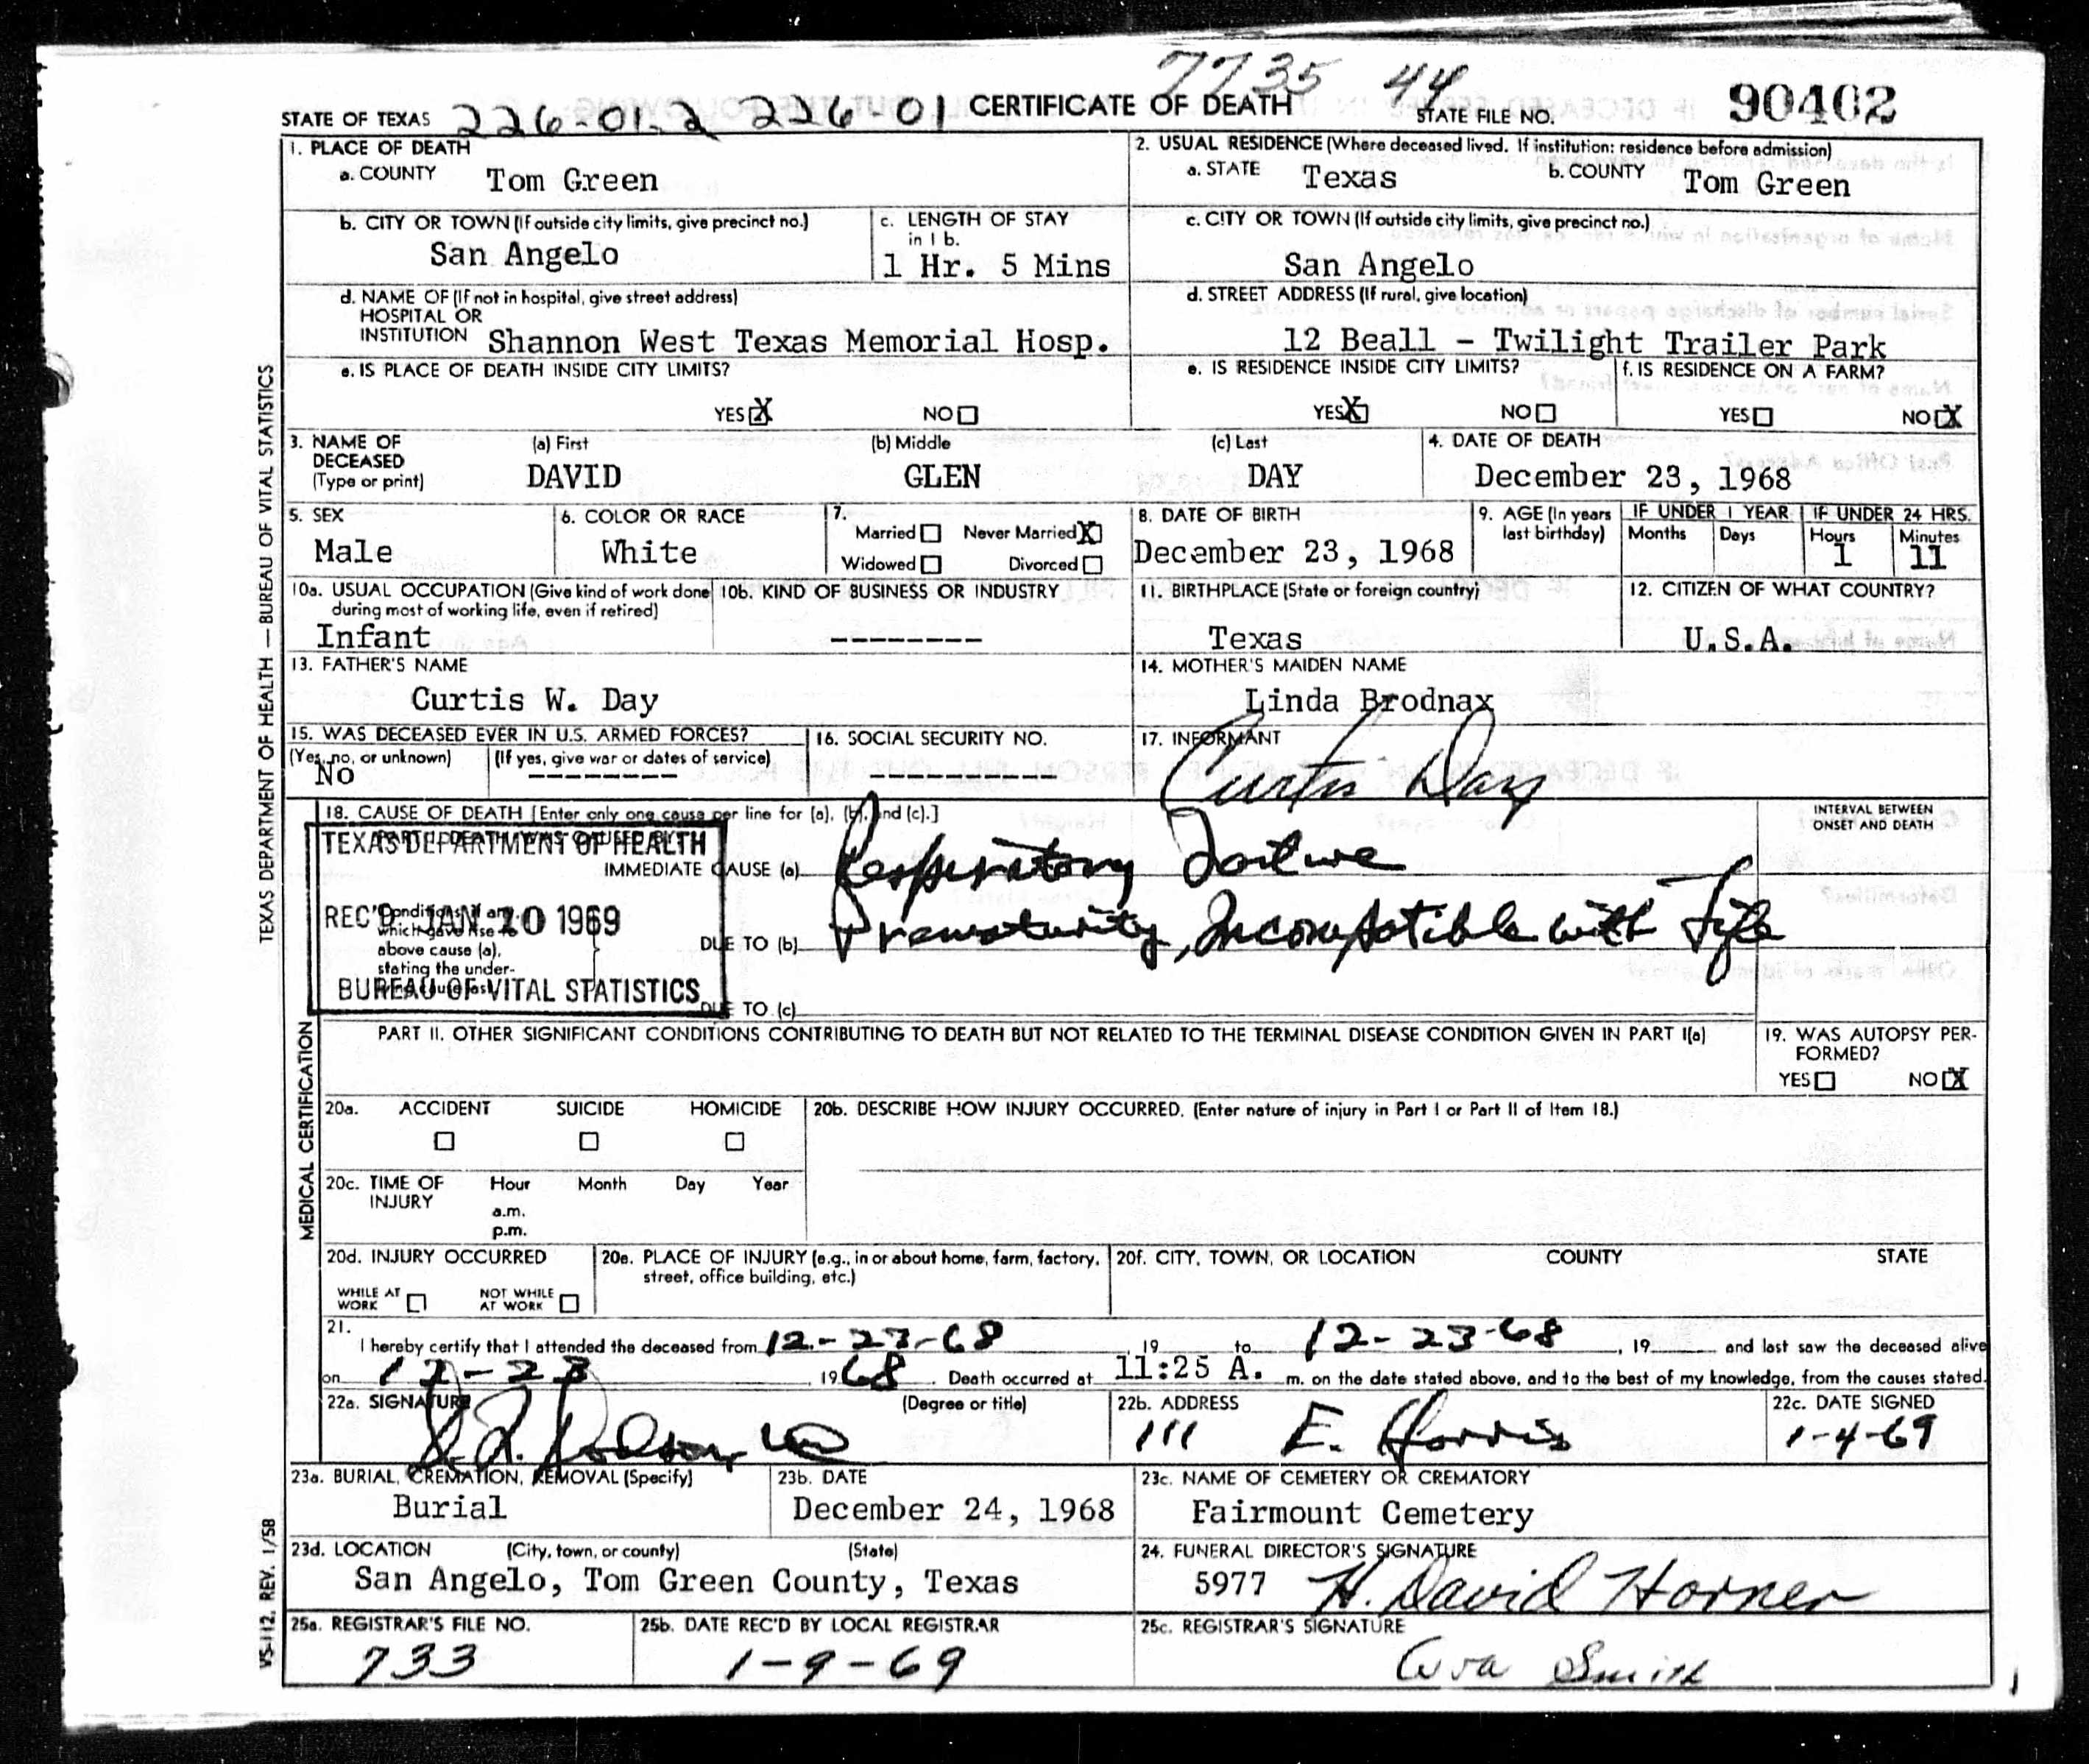 7735 44
STATE OF TEXAS 226-01.2 226-01 CERTIFICATE OF DEATH STATE FILE NO. 90402
TEXAS DEPARTMENT OF HEALTH — BUREAU OF VITAL STATISTICS
1. PLACE OF DEATH
a. COUNTY Tom Green
2. USUAL RESIDENCE (Where deceased lived. If institution: residence before admission)
a. STATE Texas b. COUNTY Tom Green
b. CITY OR TOWN (If outside city limits, give precinct no.)
San Angelo
c. LENGTH OF STAY
in 1 b.
1 Hr. 5 Mins
c. CITY OR TOWN (If outside city limits, give precinct no.)
San Angelo
d. NAME OF (If not in hospital, give street address)
HOSPITAL OR
INSTITUTION Shannon West Texas Memorial Hosp.
d. STREET ADDRESS (If rural, give location)
12 Beall - Twilight Trailer Park
e. IS PLACE OF DEATH INSIDE CITY LIMITS?
YES X NO
e. IS RESIDENCE INSIDE CITY LIMITS?
YES X NO
f. IS RESIDENCE ON A FARM?
YES NO X
3. NAME OF
DECEASED
(Type or print)
(a) First (b) Middle (c) Last
DAVID GLEN DAY
4. DATE OF DEATH
December 23, 1968
5. SEX
Male
6. COLOR OR RACE
White
7.
Married Never Married X
Widowed Divorced
8. DATE OF BIRTH
December 23, 1968
9. AGE (In years
last birthday)
IF UNDER 1 YEAR
Months Days
IF UNDER 24 HRS.
Hours Minutes
1 11
10a. USUAL OCCUPATION (Give kind of work done
during most of working life, even if retired)
Infant
10b. KIND OF BUSINESS OR INDUSTRY
--------
11. BIRTHPLACE (State or foreign country)
Texas
12. CITIZEN OF WHAT COUNTRY?
U.S.A.
13. FATHER'S NAME
Curtis W. Day
14. MOTHER'S MAIDEN NAME
Linda Brodnax
15. WAS DECEASED EVER IN U.S. ARMED FORCES?
(Yes, no, or unknown) (If yes, give war or dates of service)
No --------
16. SOCIAL SECURITY NO.
----------
17. INFORMANT
Curtis Day
18. CAUSE OF DEATH [Enter only one cause per line for (a), (b), and (c).]
INTERVAL BETWEEN
ONSET AND DEATH
PART I. DEATH WAS CAUSED BY:
TEXAS DEPARTMENT OF HEALTH
IMMEDIATE CAUSE (a) Respiratory Failure
REC'D JAN 10 1969
Conditions, if any,
which gave rise to
above cause (a),
stating the under-
lying cause last.
DUE TO (b) Prematurity, Incompatible with Life
BUREAU OF VITAL STATISTICS
DUE TO (c)
MEDICAL CERTIFICATION
PART II. OTHER SIGNIFICANT CONDITIONS CONTRIBUTING TO DEATH BUT NOT RELATED TO THE TERMINAL DISEASE CONDITION GIVEN IN PART I(a)
19. WAS AUTOPSY PER-
FORMED?
YES NO X
20a. ACCIDENT SUICIDE HOMICIDE
20b. DESCRIBE HOW INJURY OCCURRED. (Enter nature of injury in Part I or Part II of Item 18.)
20c. TIME OF
INJURY
Hour Month Day Year
a.m.
p.m.
20d. INJURY OCCURRED
WHILE AT
WORK
NOT WHILE
AT WORK
20e. PLACE OF INJURY (e.g., in or about home, farm, factory,
street, office building, etc.)
20f. CITY, TOWN, OR LOCATION COUNTY STATE
21.
I hereby certify that I attended the deceased from 12-23-68, 19 to 12-23-68, 19 and last saw the deceased alive
on 12-23, 1968. Death occurred at 11:25 A. m. on the date stated above, and to the best of my knowledge, from the causes stated.
22a. SIGNATURE (Degree or title)
22b. ADDRESS
111 E. Harris
22c. DATE SIGNED
1-4-69
23a. BURIAL, CREMATION, REMOVAL (Specify)
Burial
23b. DATE
December 24, 1968
23c. NAME OF CEMETERY OR CREMATORY
Fairmount Cemetery
23d. LOCATION (City, town, or county) (State)
San Angelo, Tom Green County, Texas
24. FUNERAL DIRECTOR'S SIGNATURE
5977 H. David Horner
25a. REGISTRAR'S FILE NO.
733
25b. DATE REC'D BY LOCAL REGISTRAR
1-9-69
25c. REGISTRAR'S SIGNATURE
Smith
VS-112. REV. 1/58